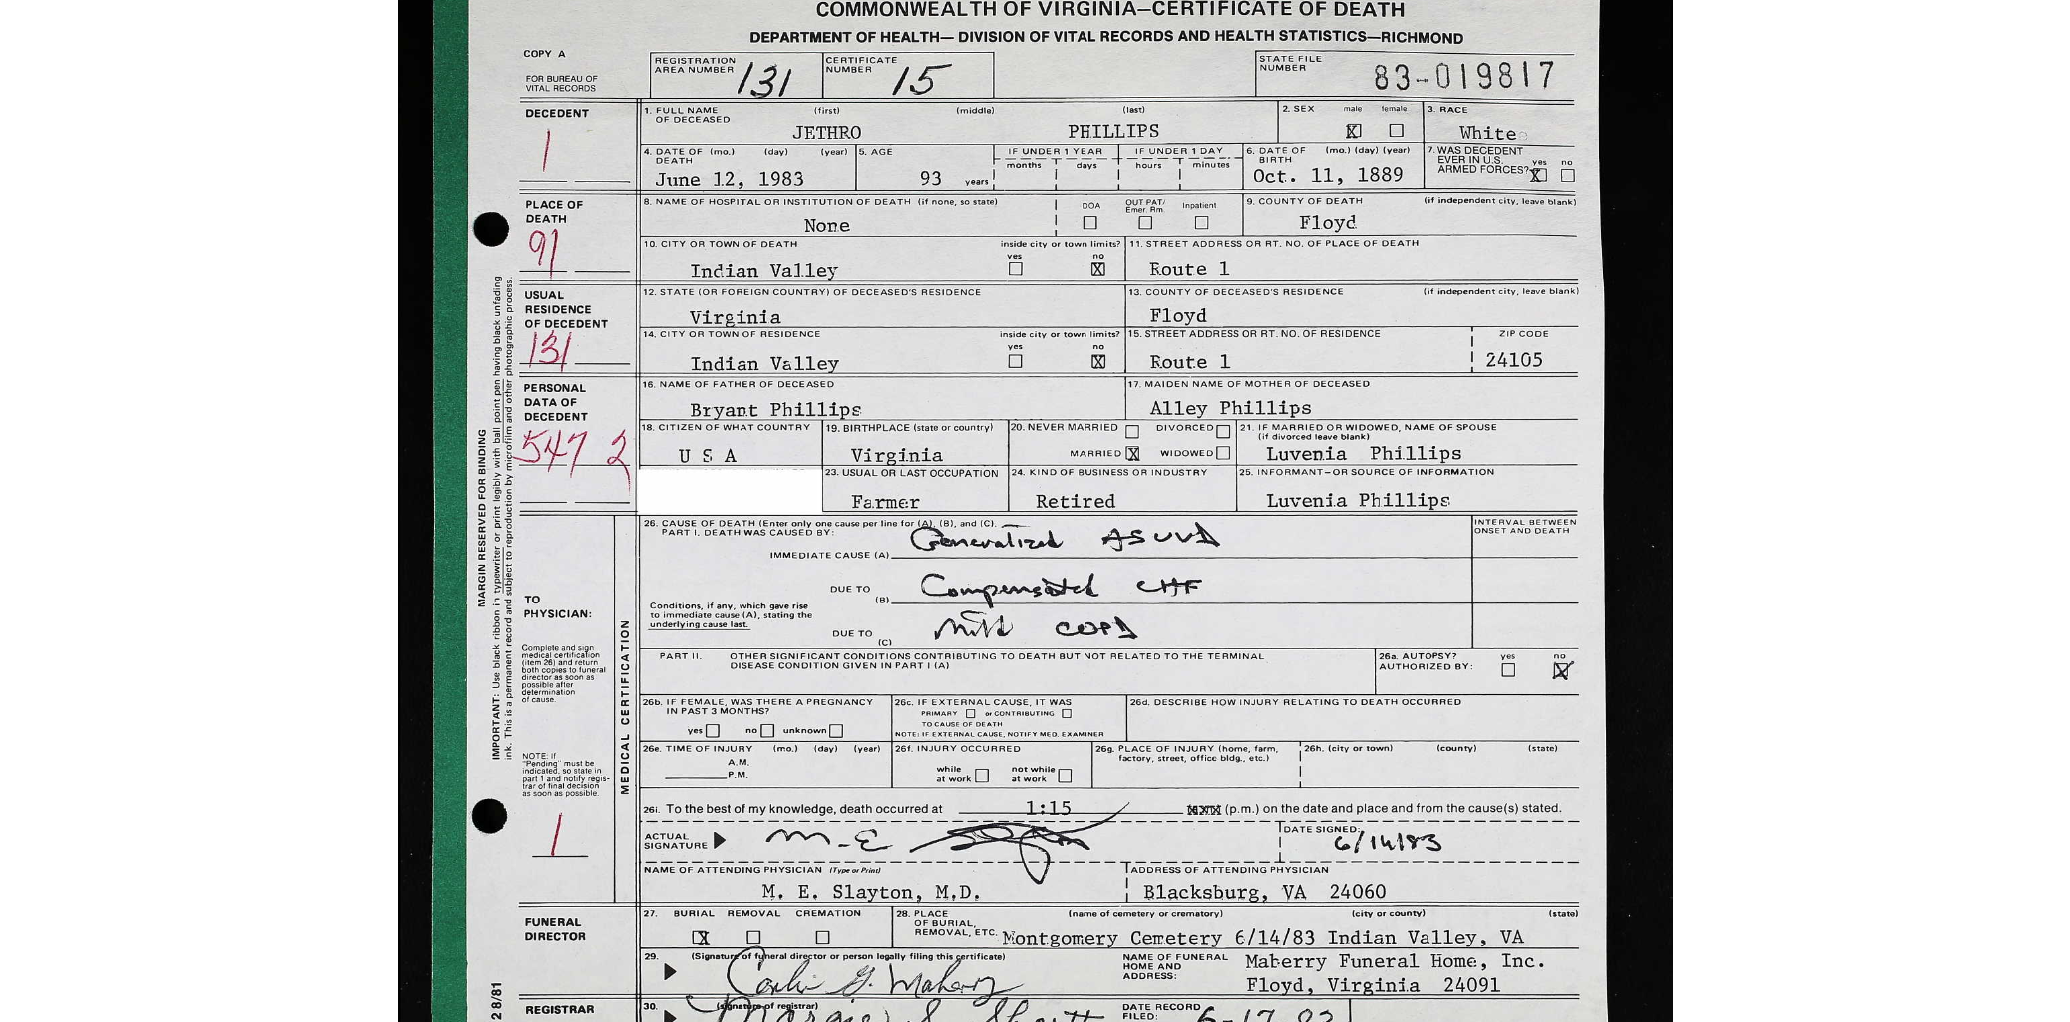 COMMONWEALTH OF VIRGINIA—CERTIFICATE OF DEATH
DEPARTMENT OF HEALTH— DIVISION OF VITAL RECORDS AND HEALTH STATISTICS—RICHMOND
COPY A
FOR BUREAU OF VITAL RECORDS
REGISTRATION AREA NUMBER 131
CERTIFICATE NUMBER 15
STATE FILE NUMBER 83-019817
DECEDENT
1
1. FULL NAME OF DECEASED (first) (middle) (last)
JETHRO PHILLIPS
2. SEX male female
X
3. RACE
White
4. DATE OF DEATH (mo.) (day) (year)
June 12, 1983
5. AGE
93 years
IF UNDER 1 YEAR months days
IF UNDER 1 DAY hours minutes
6. DATE OF BIRTH (mo.) (day) (year)
Oct. 11, 1889
7. WAS DECEDENT EVER IN U.S. ARMED FORCES? yes no
X
PLACE OF DEATH
91
8. NAME OF HOSPITAL OR INSTITUTION OF DEATH (if none, so state)
None
DOA OUT PAT/ Emer. Rm. Inpatient
9. COUNTY OF DEATH (if independent city, leave blank)
Floyd
10. CITY OR TOWN OF DEATH inside city or town limits? yes no
Indian Valley X
11. STREET ADDRESS OR RT. NO. OF PLACE OF DEATH
Route 1
USUAL RESIDENCE OF DECEDENT
131
12. STATE (OR FOREIGN COUNTRY) OF DECEASED'S RESIDENCE
Virginia
13. COUNTY OF DECEASED'S RESIDENCE (if independent city, leave blank)
Floyd
14. CITY OR TOWN OF RESIDENCE inside city or town limits? yes no
Indian Valley X
15. STREET ADDRESS OR RT. NO. OF RESIDENCE ZIP CODE
Route 1 24105
PERSONAL DATA OF DECEDENT
547 2
16. NAME OF FATHER OF DECEASED
Bryant Phillips
17. MAIDEN NAME OF MOTHER OF DECEASED
Alley Phillips
18. CITIZEN OF WHAT COUNTRY
U S A
19. BIRTHPLACE (state or country)
Virginia
20. NEVER MARRIED DIVORCED
MARRIED X WIDOWED
21. IF MARRIED OR WIDOWED, NAME OF SPOUSE (if divorced leave blank)
Luvenia Phillips
23. USUAL OR LAST OCCUPATION
Farmer
24. KIND OF BUSINESS OR INDUSTRY
Retired
25. INFORMANT—OR SOURCE OF INFORMATION
Luvenia Phillips
MARGIN RESERVED FOR BINDING
IMPORTANT: Use black ribbon in typewriter or print legibly with ball point pen having black unfading
ink. This is a permanent record and subject to reproduction by microfilm and other photographic process.
TO PHYSICIAN:
Complete and sign medical certification (item 26) and return both copies to funeral director as soon as possible after determination of cause.
NOTE: If "Pending" must be indicated, so state in part 1 and notify registrar of final decision as soon as possible.
1
MEDICAL CERTIFICATION
26. CAUSE OF DEATH (Enter only one cause per line for (A), (B), and (C).
PART I. DEATH WAS CAUSED BY:
INTERVAL BETWEEN ONSET AND DEATH
IMMEDIATE CAUSE (A) Generalized ASCVD
DUE TO (B) Compensated CHF
Conditions, if any, which gave rise to immediate cause (A), stating the underlying cause last.
DUE TO (C) Mild COPD
PART II. OTHER SIGNIFICANT CONDITIONS CONTRIBUTING TO DEATH BUT NOT RELATED TO THE TERMINAL DISEASE CONDITION GIVEN IN PART I (A)
26a. AUTOPSY? AUTHORIZED BY: yes no
X
26b. IF FEMALE, WAS THERE A PREGNANCY IN PAST 3 MONTHS?
yes no unknown
26c. IF EXTERNAL CAUSE, IT WAS
PRIMARY or CONTRIBUTING
TO CAUSE OF DEATH
NOTE: IF EXTERNAL CAUSE, NOTIFY MED. EXAMINER
26d. DESCRIBE HOW INJURY RELATING TO DEATH OCCURRED
26e. TIME OF INJURY (mo.) (day) (year)
A.M.
P.M.
26f. INJURY OCCURRED
while at work not while at work
26g. PLACE OF INJURY (home, farm, factory, street, office bldg., etc.)
26h. (city or town) (county) (state)
26i. To the best of my knowledge, death occurred at 1:15 (p.m.) on the date and place and from the cause(s) stated.
ACTUAL SIGNATURE M. E. Slayton
DATE SIGNED: 6/14/83
NAME OF ATTENDING PHYSICIAN (Type or Print)
M. E. Slayton, M.D.
ADDRESS OF ATTENDING PHYSICIAN
Blacksburg, VA 24060
FUNERAL DIRECTOR
27. BURIAL REMOVAL CREMATION
X
28. PLACE OF BURIAL, REMOVAL, ETC. (name of cemetery or crematory) (city or county) (state)
Montgomery Cemetery 6/14/83 Indian Valley, VA
29. (Signature of funeral director or person legally filing this certificate)
NAME OF FUNERAL HOME AND ADDRESS:
Maberry Funeral Home, Inc.
Floyd, Virginia 24091
2 8/81
REGISTRAR
30. (signature of registrar)
DATE RECORD FILED: 6-17-83